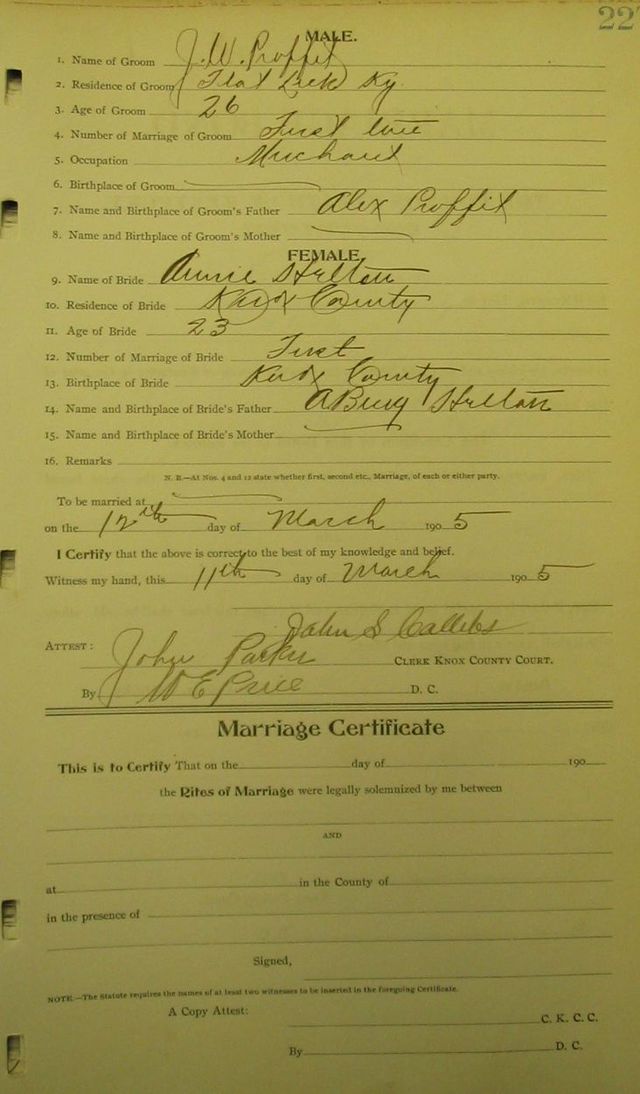 227
MALE.
1. Name of Groom J. W. Proffit
2. Residence of Groom Flat Lick Ky.
3. Age of Groom 26
4. Number of Marriage of Groom First time
5. Occupation Merchant
6. Birthplace of Groom
7. Name and Birthplace of Groom's Father Alex Proffit
8. Name and Birthplace of Groom's Mother
FEMALE.
9. Name of Bride Annie Helton
10. Residence of Bride Knox County
11. Age of Bride 23
12. Number of Marriage of Bride First
13. Birthplace of Bride Knox County
14. Name and Birthplace of Bride's Father Helton
15. Name and Birthplace of Bride's Mother
16. Remarks
N. B.—At Nos. 4 and 12 state whether first, second etc., Marriage, of each or either party.
To be married at
on the 12th day of March 1905
I Certify that the above is correct to the best of my knowledge and belief.
Witness my hand, this 11th day of March 1905
John S
ATTEST: John Parker CLERK KNOX COUNTY COURT.
By W E Price D. C.
Marriage Certificate
This is to Certify That on the day of 190
the Rites of Marriage were legally solemnized by me between
AND
at in the County of
in the presence of
Signed,
NOTE.—The Statute requires the names of at least two witnesses to be inserted in the foregoing Certificate.
A Copy Attest:
C. K. C. C.
By D. C.